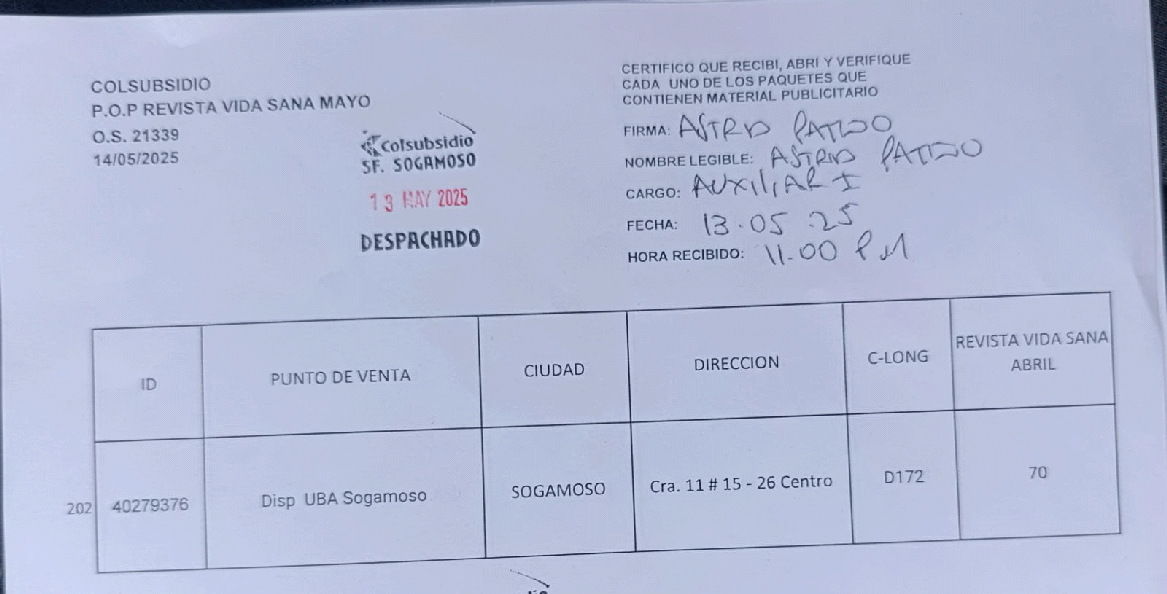 COLSUBSIDIO
P.O.P REVISTA VIDA SANA MAYO
O.S. 21339
14/05/2025
Colsubsidio
SF. SOGAMOSO
13 MAY 2025
DESPACHADO
CERTIFICO QUE RECIBI, ABRI Y VERIFIQUE
CADA UNO DE LOS PAQUETES QUE
CONTIENEN MATERIAL PUBLICITARIO
FIRMA: ASTRID PATIÑO
NOMBRE LEGIBLE: ASTRID PATIÑO
CARGO: AUXILIAR I
FECHA: 13.05.25
HORA RECIBIDO: 11.00 PM
ID
PUNTO DE VENTA
CIUDAD
DIRECCION
C-LONG
REVISTA VIDA SANA
ABRIL
202
40279376
Disp UBA Sogamoso
SOGAMOSO
Cra. 11 # 15 - 26 Centro
D172
70